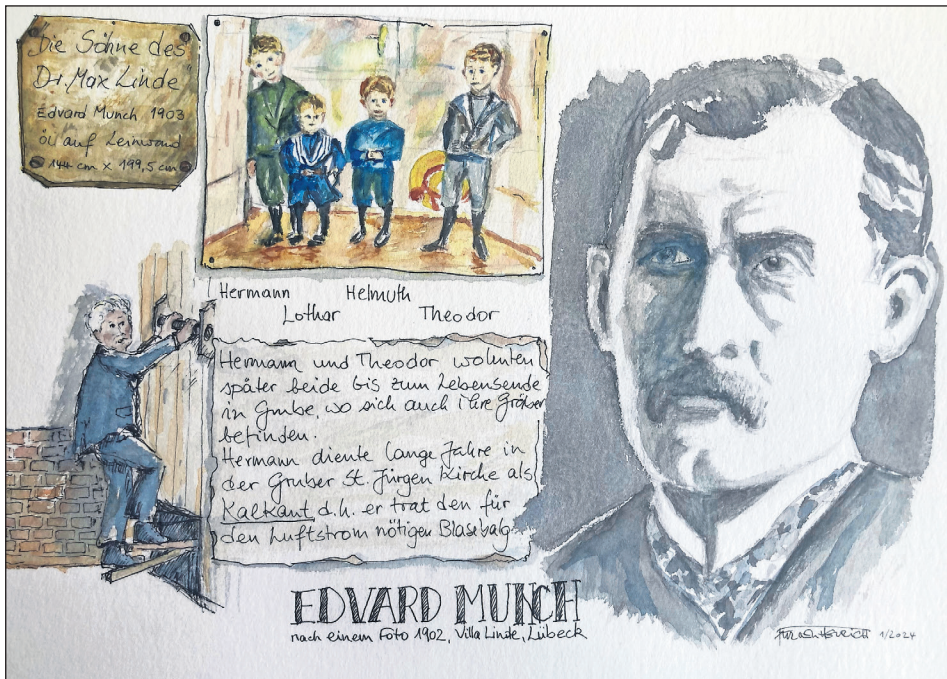 "Die Söhne des
Dr. Max Linde"
Edvard Munch 1903
Öl auf Leinwand
144 cm x 199,5 cm
Hermann Helmuth
Lothar Theodor
Hermann und Theodor wohnten
später beide bis zum Lebensende
in Grube, wo sich auch ihre Gräber
befinden.
Hermann diente lange Jahre in
der Gruber St. Jürgen Kirche als
Kalkant, d.h. er trat den für
den Luftstrom nötigen Blasebalg.
EDVARD MUNCH
nach einem Foto 1902, Villa Linde, Lübeck
1/2024